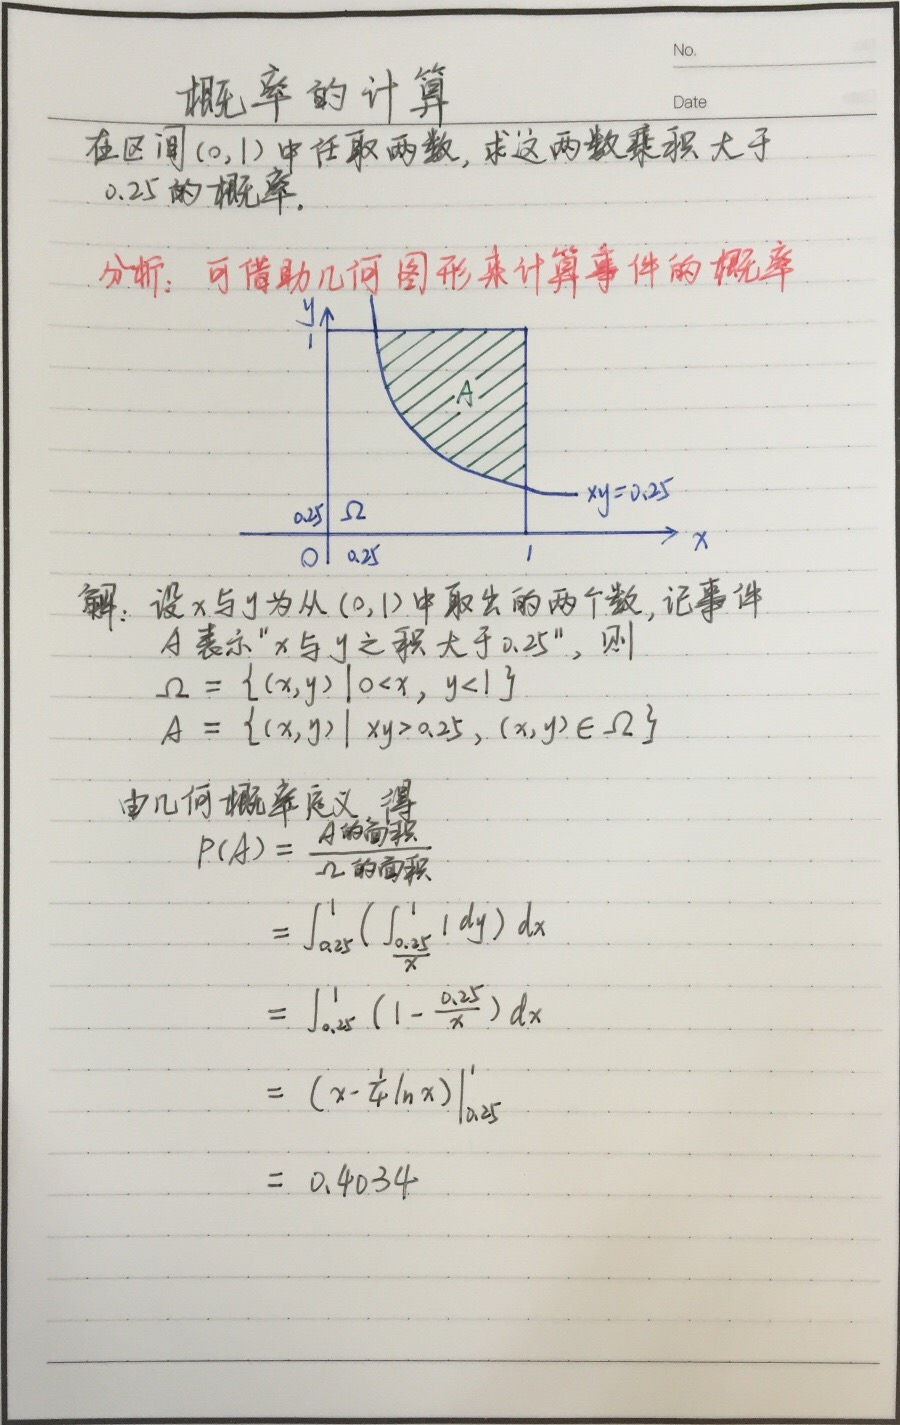 No.
概率的计算
Date
在区间(0,1)中任取两数,求这两数乘积大于
0.25的概率.
分析:可借助几何图形来计算事件的概率
y
1
A
xy=0.25
0.25 Ω
O 0.25 1 x
解:设x与y为从(0,1)中取出的两个数,记事件
A表示"x与y之积大于0.25",则
Ω = {(x,y)|0<x, y<1}
A = {(x,y)| xy>0.25, (x,y)∈Ω}
由几何概率定义,得
P(A) = A的面积/Ω的面积
= ∫_{0.25}^{1} (∫_{0.25/x}^{1} 1 dy) dx
= ∫_{0.25}^{1} (1 - 0.25/x) dx
= (x - 1/4 ln x)|_{0.25}^{1}
= 0.4034